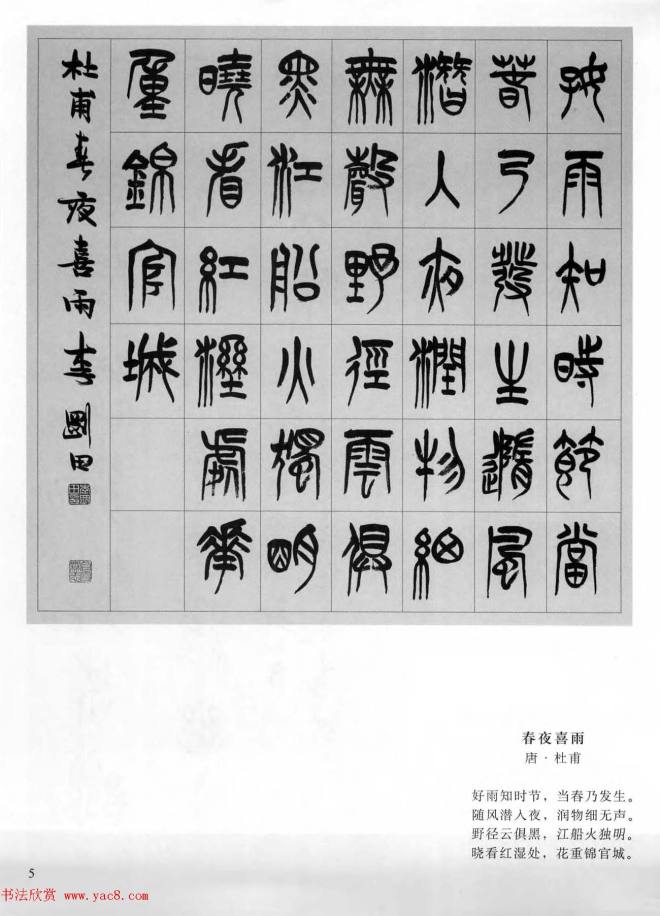 好雨知時節當
春乃發生隨風
潛入夜潤物細
無聲野徑雲俱
黑江船火獨明
曉看紅溼處華
重錦官城
杜甫春夜喜雨李剛田
春夜喜雨
唐·杜甫
好雨知时节，当春乃发生。
随风潜入夜，润物细无声。
野径云俱黑，江船火独明。
晓看红湿处，花重锦官城。
5
书法欣赏 www.yac8.com